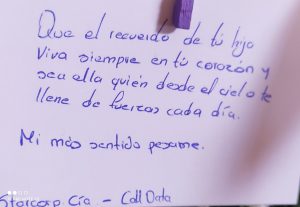 Que el recuerdo de tú hijo
viva siempre en tú corazón y
sea ella quién desde el cielo te
llene de fuerzas cada día.
Mi más sentido pesame.
Starcorp Cía - Call Data